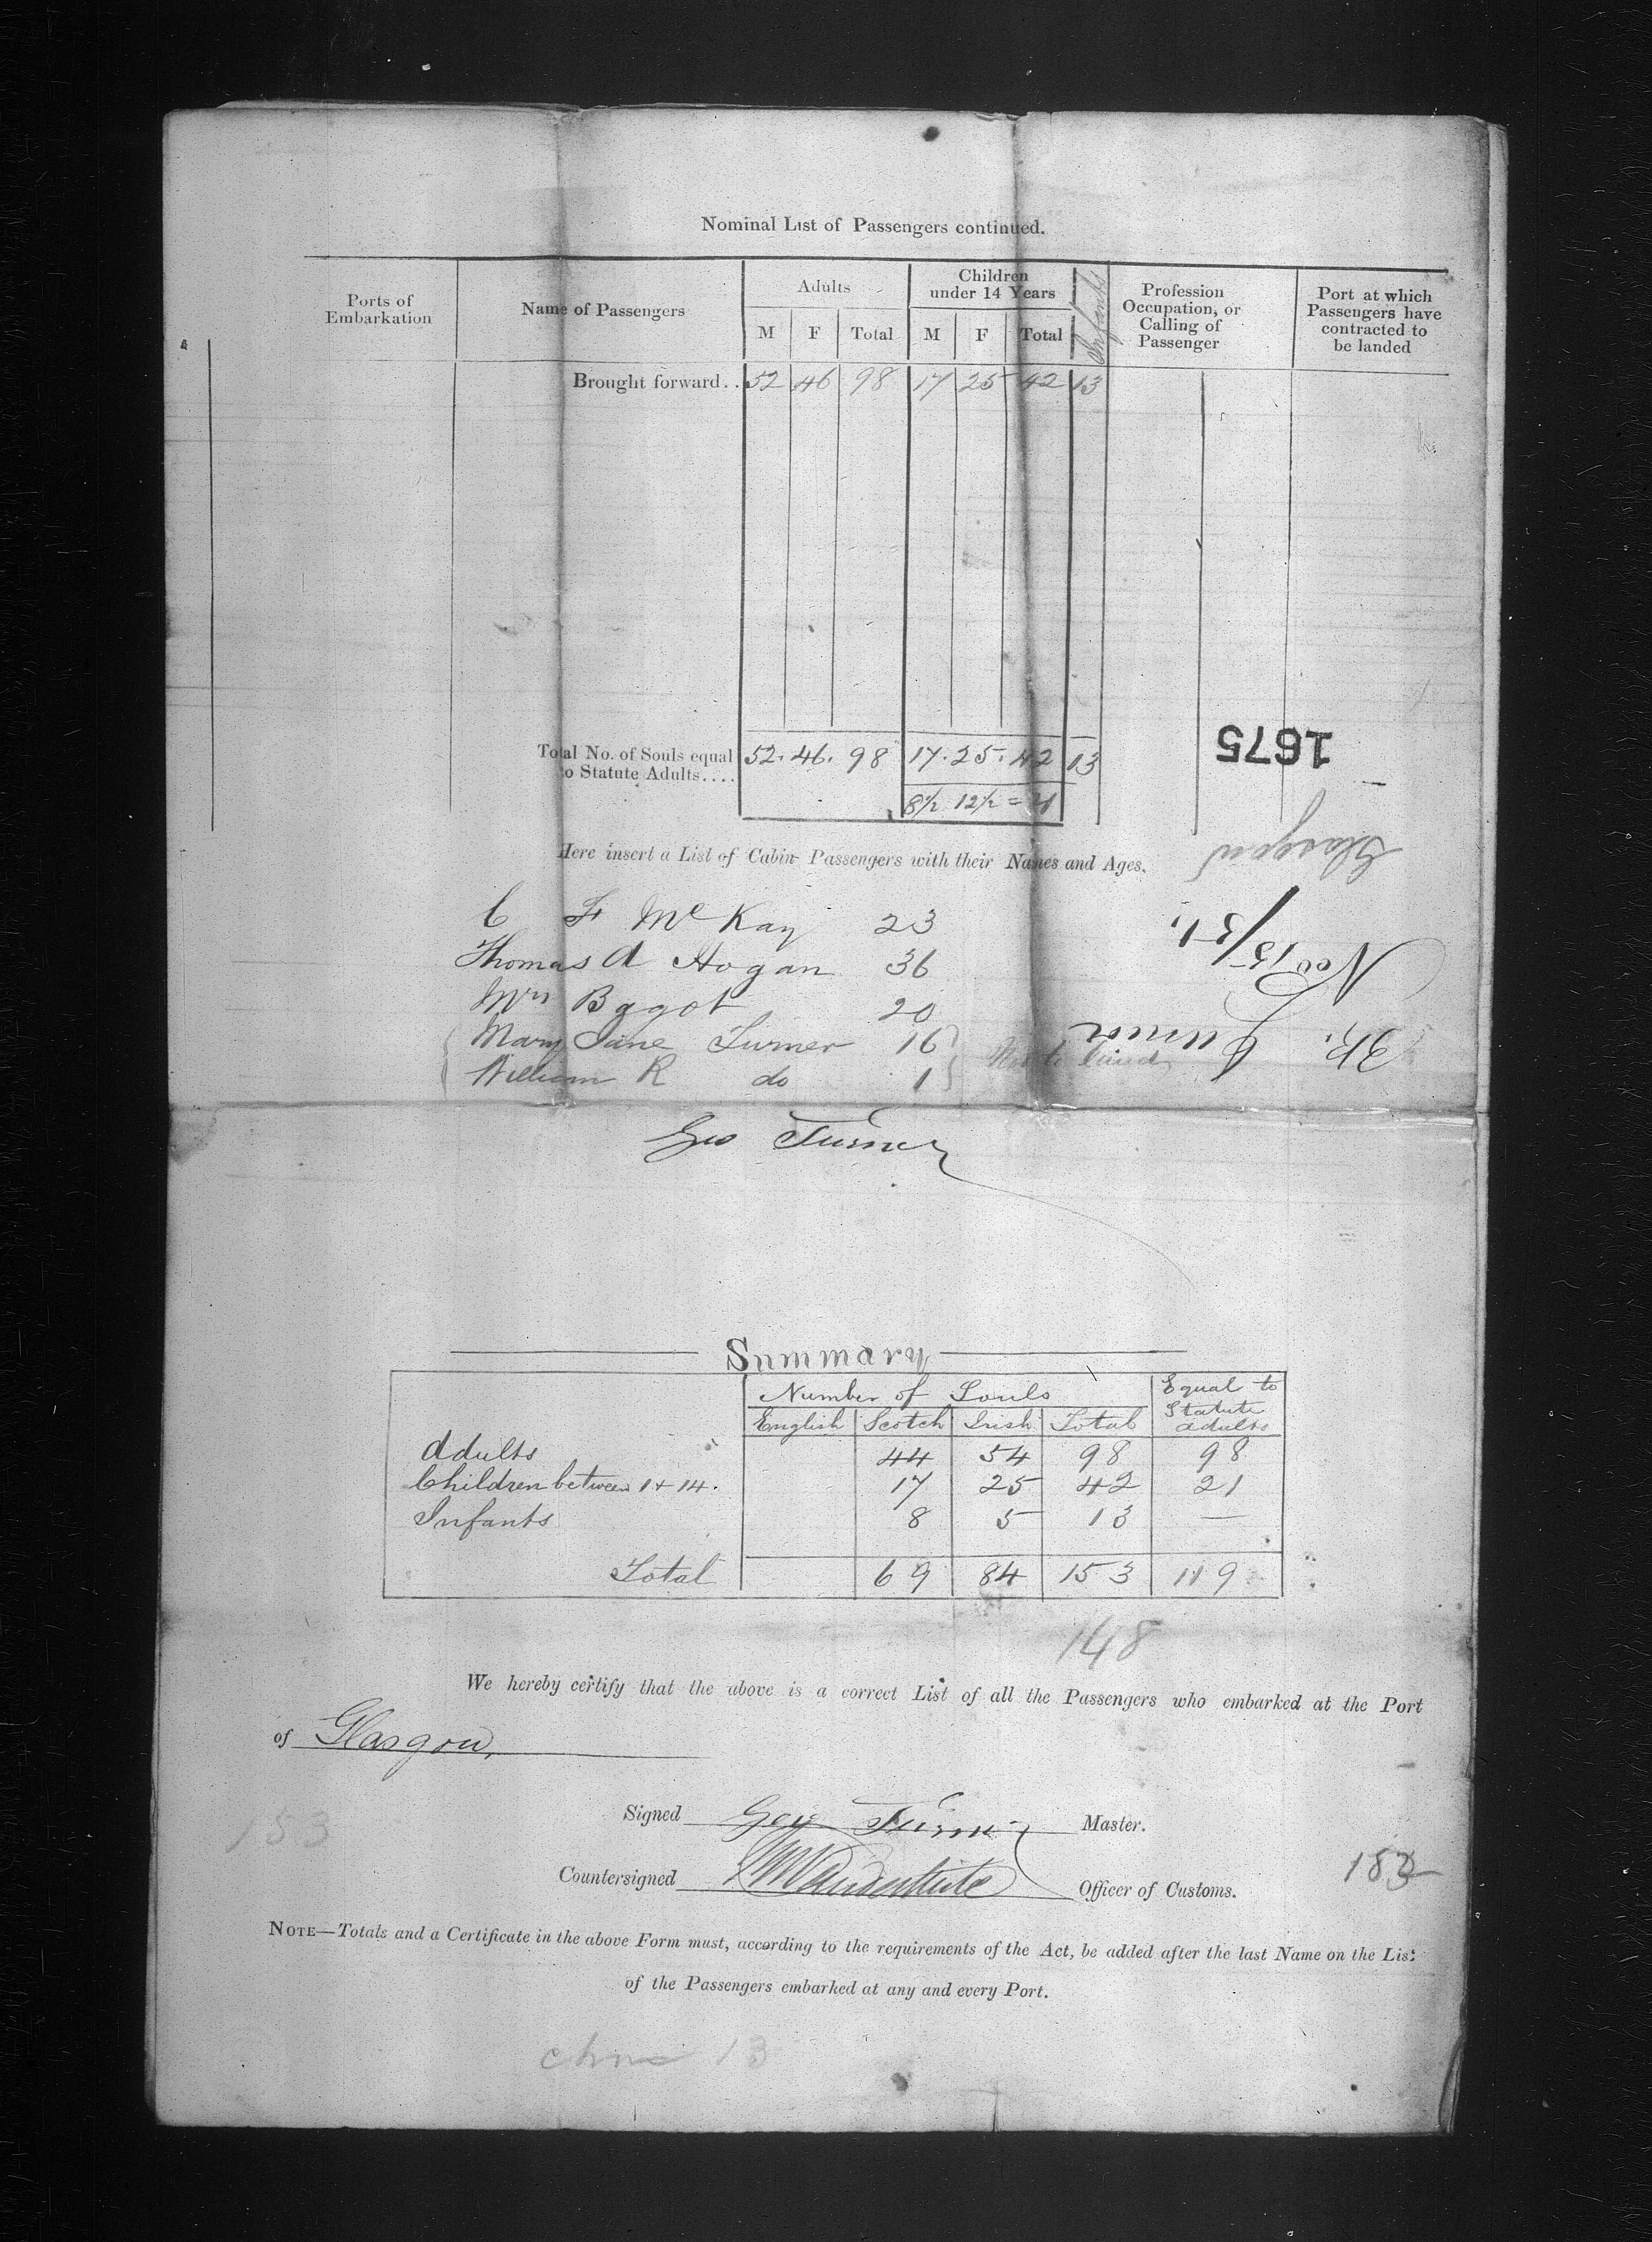 Nominal List of Passengers continued.
Ports of Embarkation | Name of Passengers | Adults | Children under 14 Years | Infants | Profession Occupation, or Calling of Passenger | Port at which Passengers have contracted to be landed
M F Total M F Total
Brought forward.. 52 46 98 17 25 42 13
Total No. of Souls equal 52. 46. 98 17. 25. 42 13
to Statute Adults....
8½ 12½ = 21
1675
Here insert a List of Cabin Passengers with their Names and Ages.
Glasgow
C F McKay 23
Thomas A Hogan 36
Nov 15/51
Mrs Bagot 20
Mary Jane Turner 16
William R do 1
Geo Turner
Summary
Number of Souls Equal to Statute adults
English Scotch Irish Total
Adults 44 54 98 98
Children between 1 + 14. 17 25 42 21
Infants 8 5 13 —
Total 69 84 153 119
148
We hereby certify that the above is a correct List of all the Passengers who embarked at the Port
of Glasgow,
153
Signed Geo Turner Master.
Countersigned Officer of Customs.
NOTE—Totals and a Certificate in the above Form must, according to the requirements of the Act, be added after the last Name on the List
of the Passengers embarked at any and every Port.
13